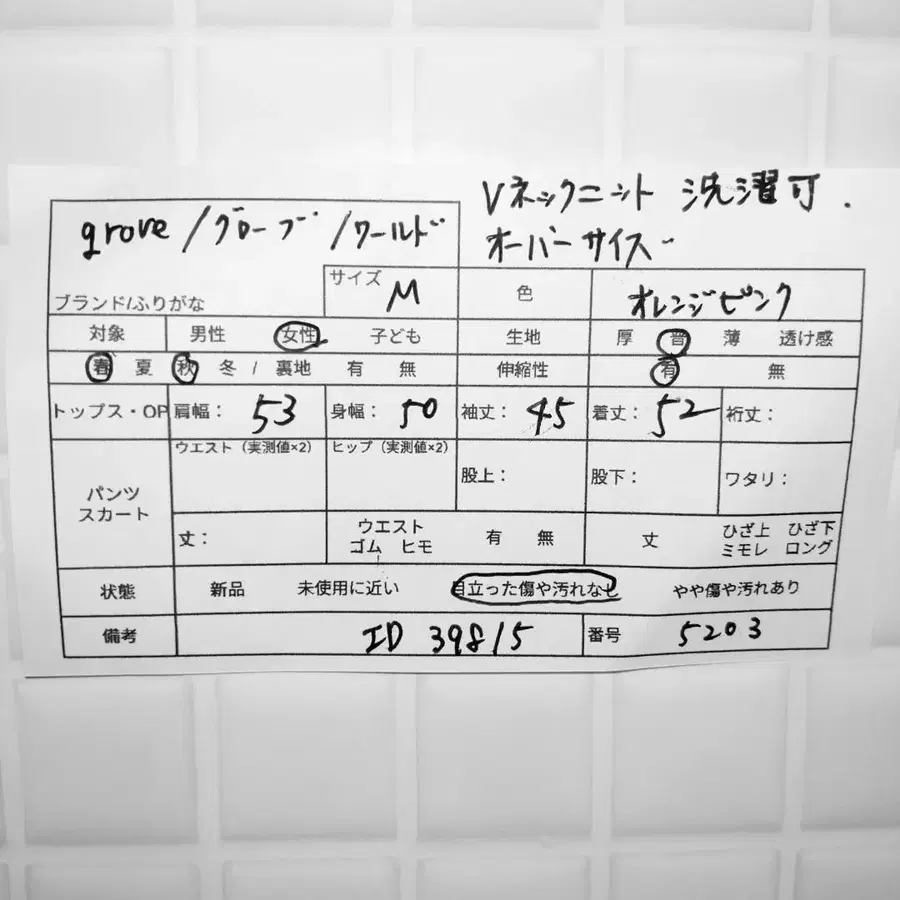 Vネックニット 洗濯可.
grove/グローブ/ワールド
オーバーサイズ
ブランド/ふりがな サイズ M 色 オレンジピンク
対象 男性 女性 子ども 生地 厚 普 薄 透け感
春 夏 秋 冬 / 裏地 有 無 伸縮性 有 無
トップス・OP 肩幅: 53 身幅: 50 袖丈: 45 着丈: 52 裄丈:
パンツ スカート ウエスト(実測値×2) ヒップ(実測値×2) 股上: 股下: ワタリ:
丈: ウエスト 有 無 丈 ひざ上 ひざ下
ゴム ヒモ ミモレ ロング
状態 新品 未使用に近い 目立った傷や汚れなし やや傷や汚れあり
備考 ID 39815 番号 5203